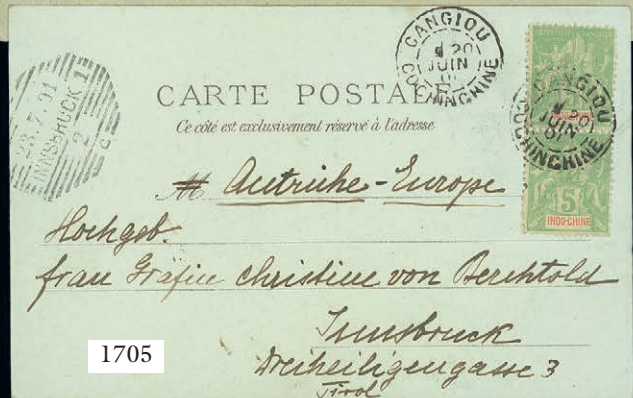 CANGIOU
20
JUIN
01
COCHINCHINE
CANGIOU
COCHINCHINE
5
INDO-CHINE
INNSBRUCK 1
23.7.01
2
c
CARTE POSTALE
Ce côté est exclusivement réservé à l'adresse
M Autriche-Europe
Hochgeb.
Frau Gräfin Christine von Berchtold
Innsbruck
Dreiheiligengasse 3
Tirol
1705